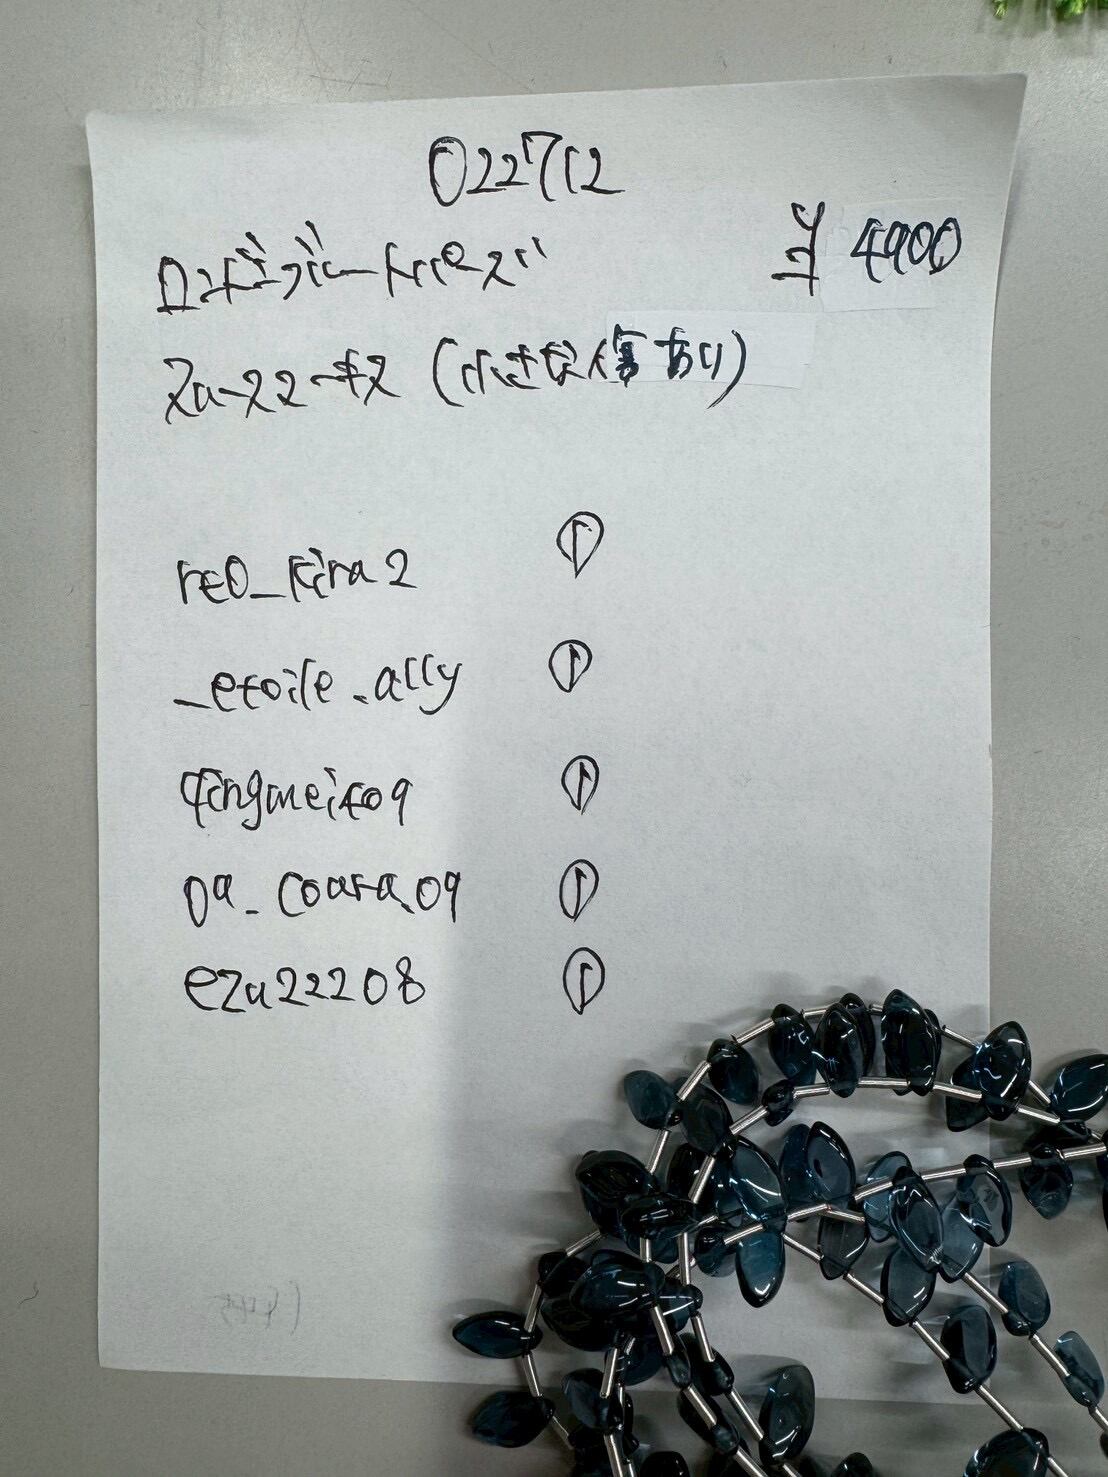 022712
ロンドンブルートパーズ
¥4900
スムースマーキス (小さな傷あり)
re0_kira2
_etoile.ally
qingmeiko9
09_coara.09
eza22208